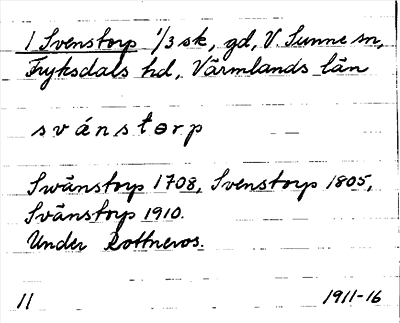 1 Svenstorp 1/3 sk, gd, V. Sunne sn,
Fryksdals hd, Värmlands län
svánstɵrp
Swänstorp 1708, Svenstorp 1805,
Svänstorp 1910.
Under Rottneros.
11 1911-16